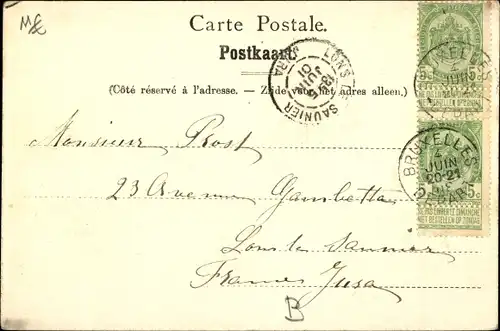 Carte Postale.
Postkaart.
(Côté réservé à l'adresse. — Zijde voor het adres alleen.)
LONS SAUNIER
JURA
JUIN
01
5c 5c
BRUXELLES
JUIN
5c 5c
BRUXELLES
JUIN
20-21
DEPART
NE PAS LIVRER LE DIMANCHE
NIET BESTELLEN OP ZONDAG
Monsieur Prost
23 Avenue Gambetta
Lons le Saunier
France Jura
B